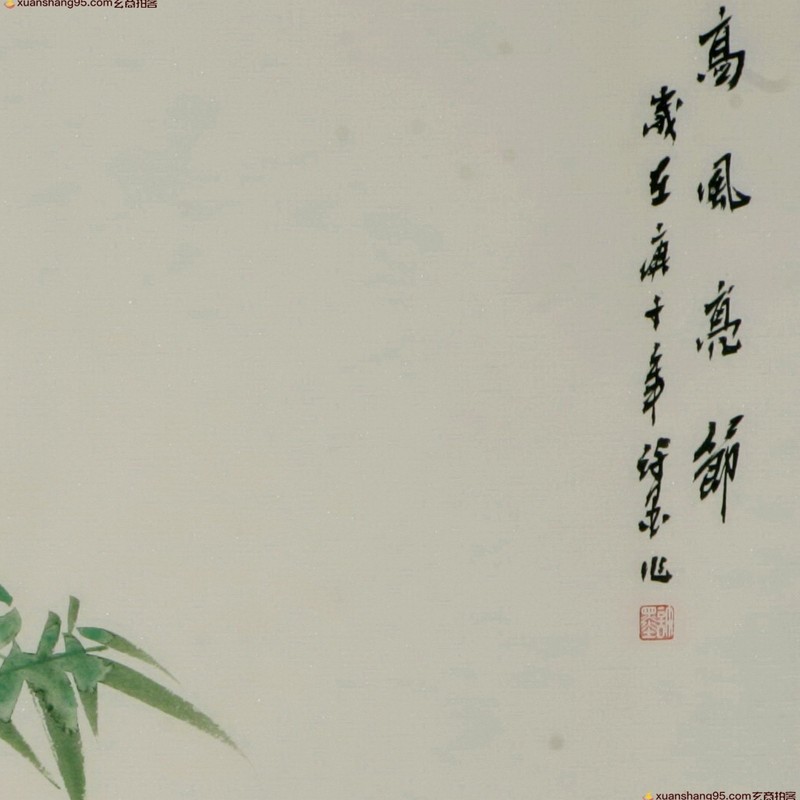 xuanshang95.com玄商拍客
高風亮節
歲在庚子年許墨作
許墨
xuanshang95.com玄商拍客